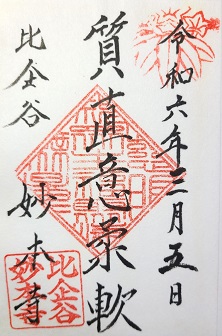 令和六年三月五日
質直意柔軟
比企谷 妙本寺
比企谷
妙本寺